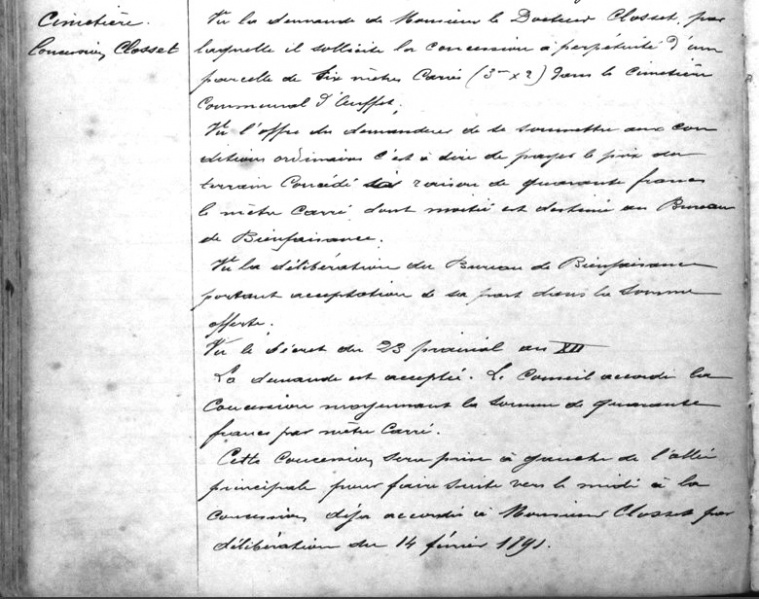 Cimetière.
Concession Closset
Vu la demande de Monsieur le Docteur Closset, par
laquelle il sollicite la concession à perpétuité d'une
parcelle de six mètres Carrés (3m x 2) dans le Cimetière
Communal d'Ouffet,
Vu l'offre du demandeur de se soumettre aux con
ditions ordinaires c'est à dire de payer le prix du
terrain Concédé à raison de quarante francs
le mètre Carré dont moitié est destinée au Bureau
de Bienfaisance.
Vu la délibération du Bureau de Bienfaisance
portant acceptation de sa part dans la somme
offerte.
Vu le décret du 23 prairial an XII
La demande est acceptée. Le Conseil accorde la
Concession moyennant la somme de quarante
francs par mètre Carré.
Cette Concession sera prise à gauche de l'allée
principale pour faire suite vers le midi à la
Concession déja accordée à Monsieur Closset par
délibération du 14 février 1891.